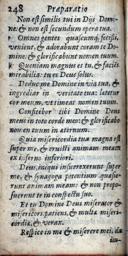 248 Præparatio
Non est similis tui in Dijs Domine
& non est secundum opera tua.
Omnes gentes quascumq; fecisti,
venient, & adorabunt coram te Domine
& glorificabunt nomen tuum.
Quoniam magnus es tu, & faciens
mirabilia: tu es Deus solus.
Deduc me Domine in via tua, &
ingrediar in veritate tua: lætetur
cor meum, vt timeat nomen tuum.
Confitebor tibi Domine Deus
meus in toto corde meo, & glorificabo
nomen tuum in æternum.
Quia misericordia tua magna est
super me, & eruisti animam meam
ex inferno inferiori.
Deus iniqui insurrexerunt super
me, & synagoga potentium quæsierunt
animam meam, & non proposuerunt
te in conspectu suo.
Et tu Domine Deus miserator &
misericors patiens, & multæ misericordiæ,
& verax.
Respice in me & miserere mei, da